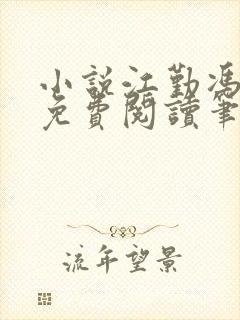 小説江勤馮
免費閱讀筆
流年望景